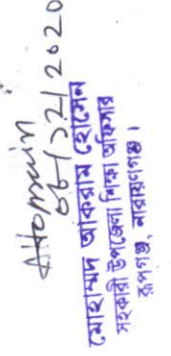 06/12/2020
মোহাম্মদ আকরাম হোসেন
সহকারী উপজেলা শিক্ষা অফিসার
রূপগঞ্জ, নারায়ণগঞ্জ।